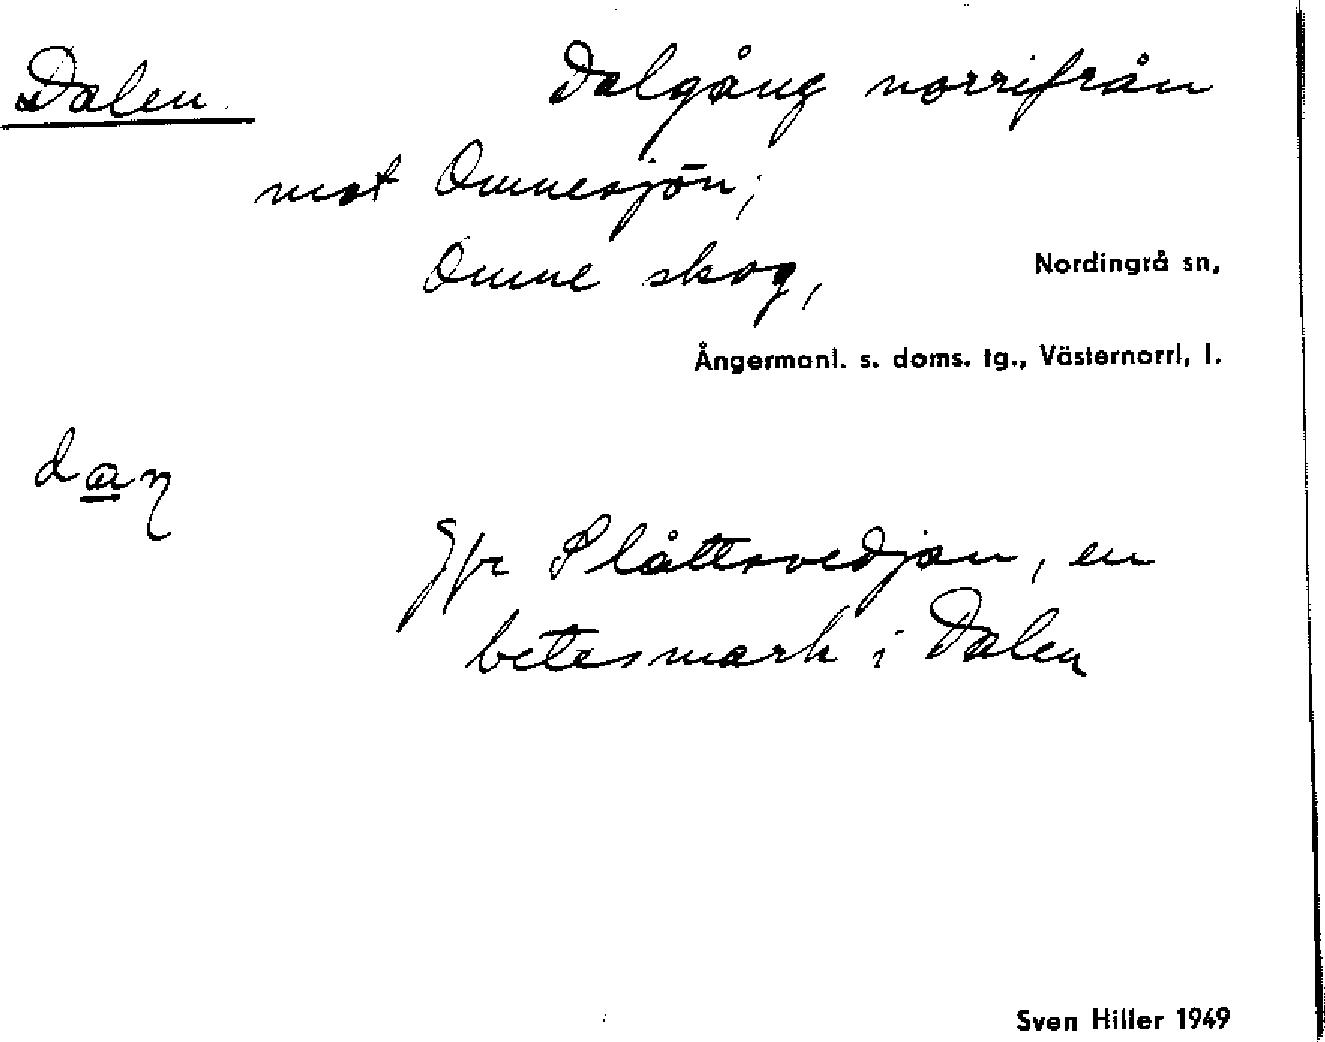 Dalen
Dalgång norrifrån
mot Omnesjön;
Omne skog,
Nordingrå sn,
Ångermanl. s. doms. tg., Västernorrl, l.
Jfr Slåttsvedjan, en
betesmark i Dalen
Sven Hiller 1949